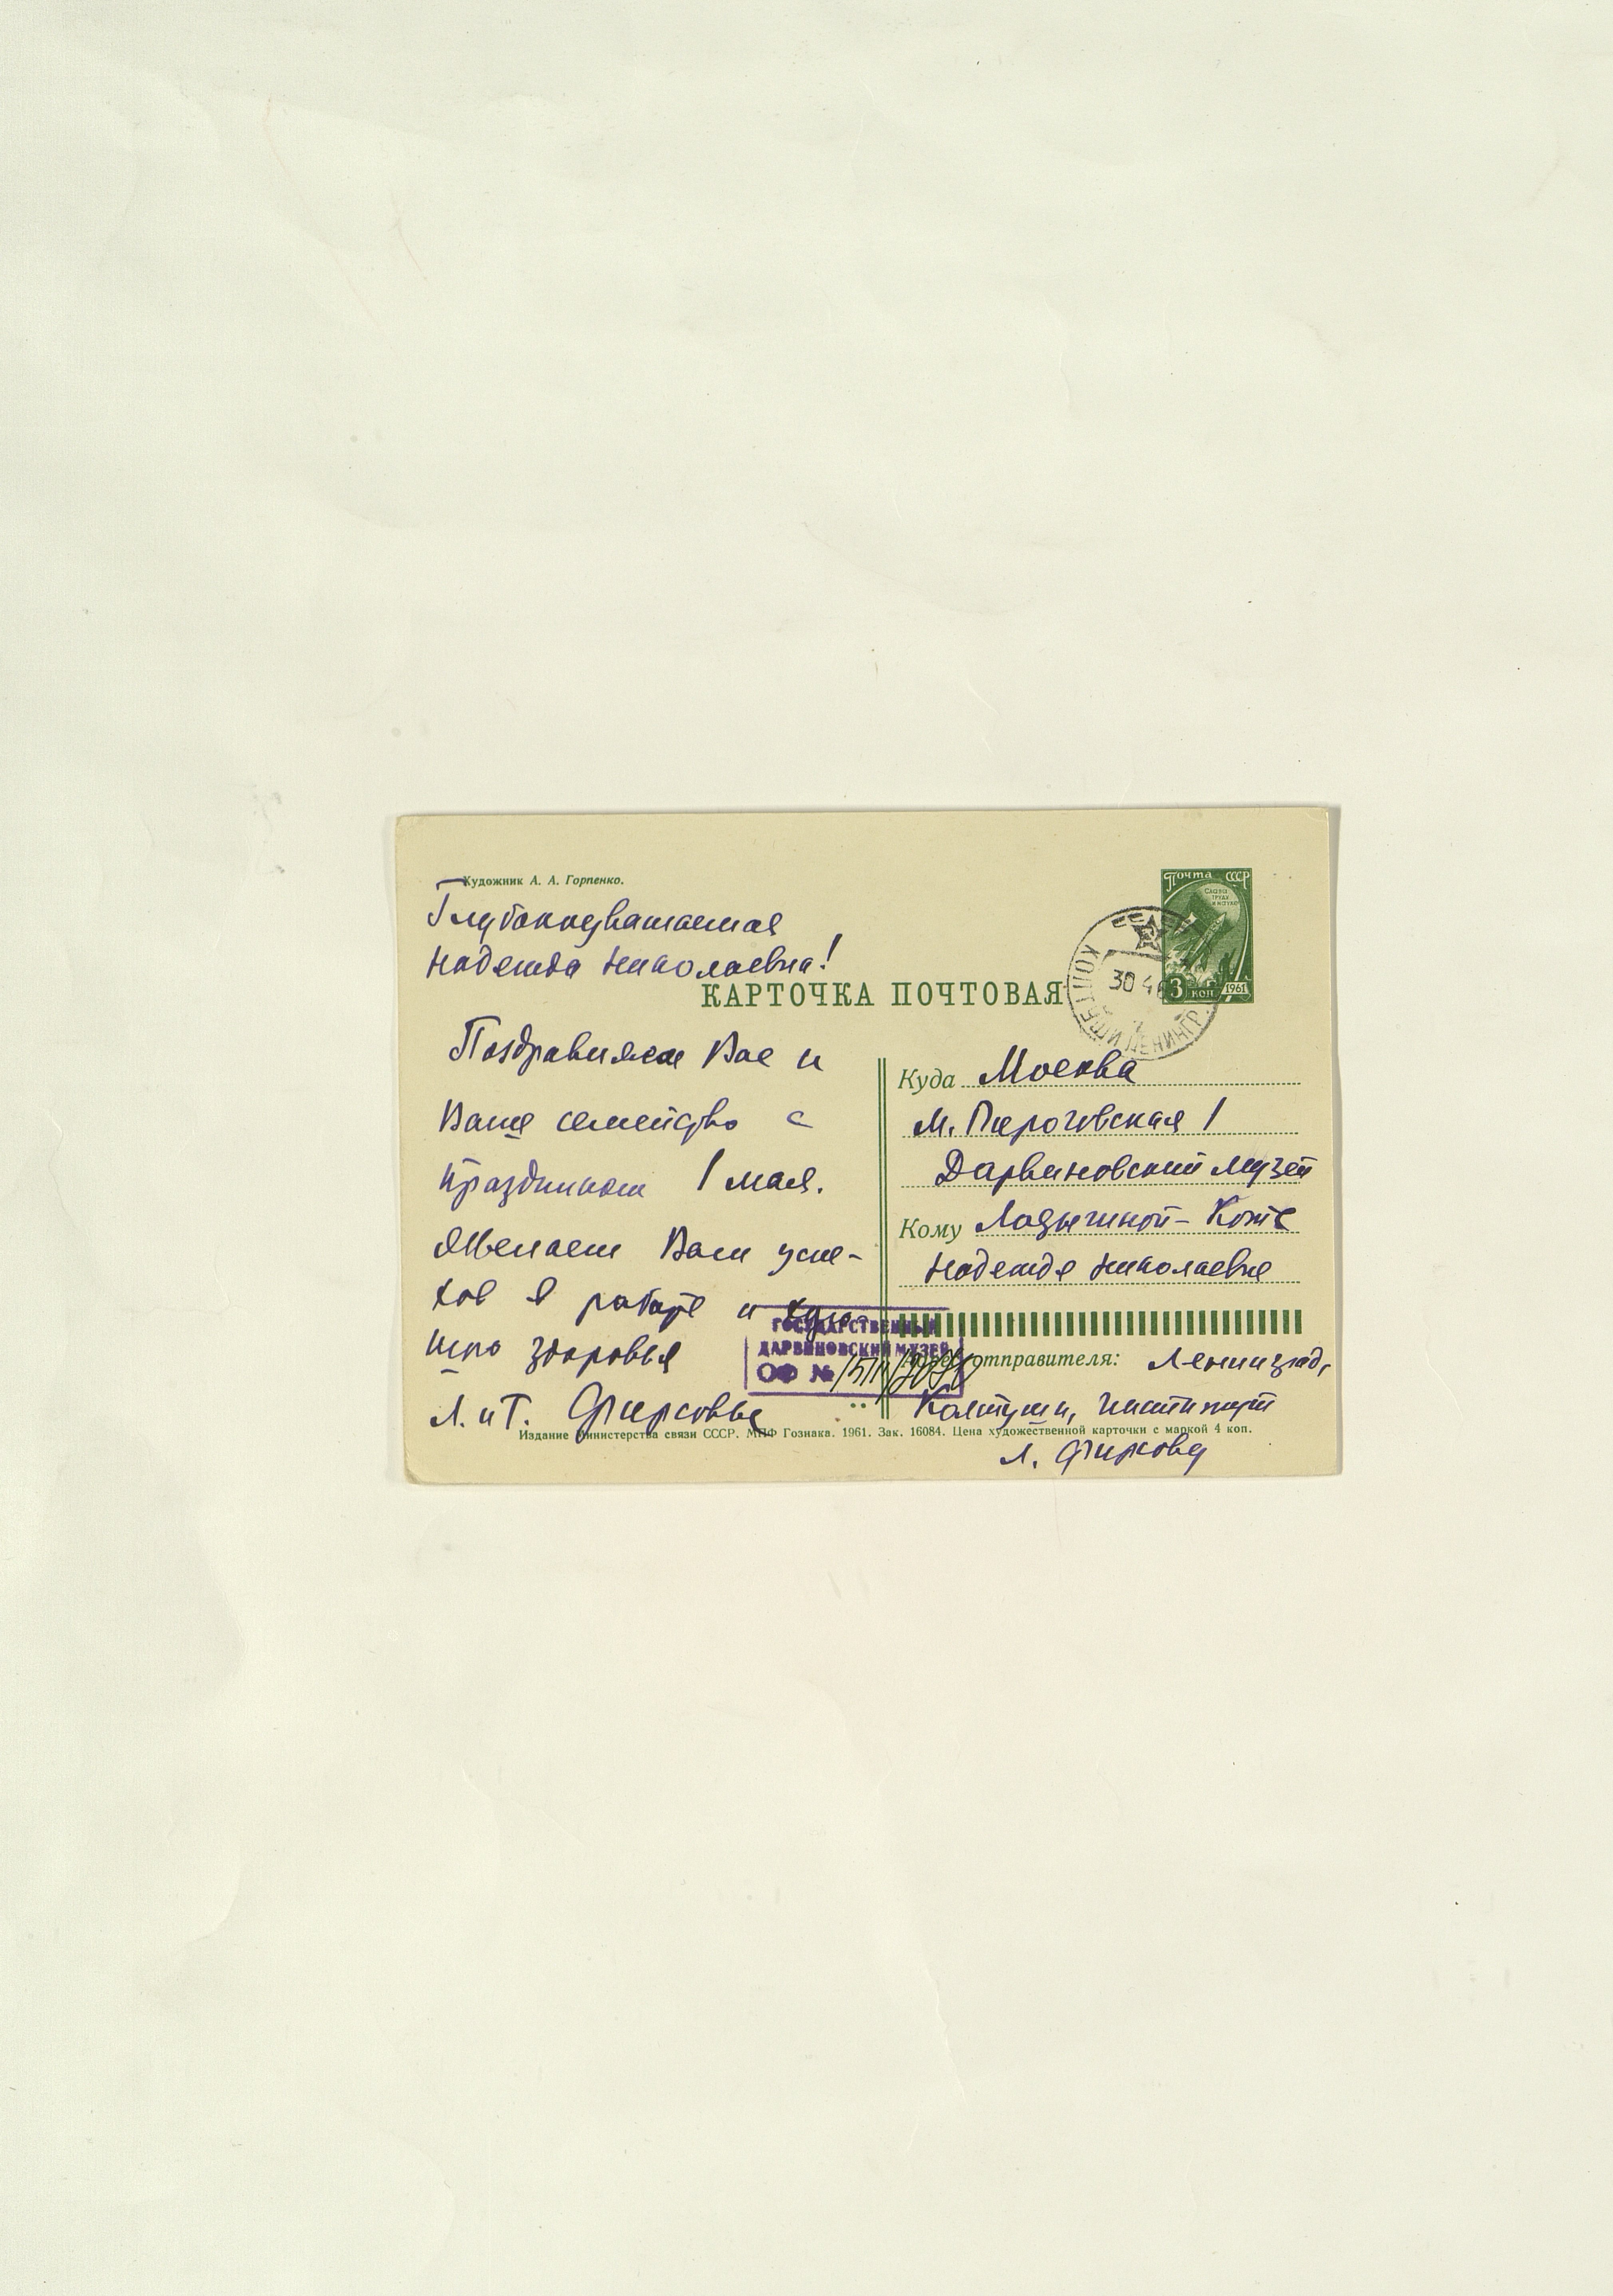 Художник А. А. Горпенко.
Почта СССР
Слава
труду
и науке
3 коп
1961
Глубокоуважаемая
Надежда Николаевна!
КАРТОЧКА ПОЧТОВАЯ
30 4
Поздравляем Вас и
Ваше семейство с
праздником 1 мая.
Желаем Вам успе-
хов в работе и
здоровья
Л. и Т. Фирсовы
Куда Москва
М. Пироговская 1
Дарвиновский музей
Кому Ладыгиной-Котс
Надежде Николаевне
ГОСУДАРСТВЕННЫЙ
ДАРВИНОВСКИЙ МУЗЕЙ
ОФ №
Адрес отправителя: Ленинград,
Колтуши, Институт
Л. Фирсову
Издание Министерства связи СССР. МПФ Гознака. 1961. Зак. 16084. Цена художественной карточки с маркой 4 коп.